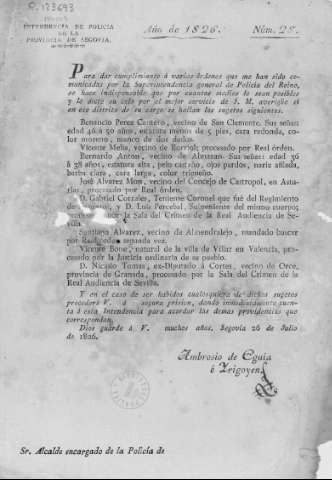 R. 123693
INTENDENCIA DE POLICÍA
DE LA
PROVINCIA DE SEGOVIA.
Año de 1826. Núm. 28.
Para dar cumplimiento á varias órdenes que me han sido
comunicadas por la Superintendencia general de Policía del Reino,
se hace indispensable que por cuantos medios le sean posibles
y le dicte su celo por el mejor servicio de S. M. averigüe si
en ese distrito de su cargo se hallan los sugetos siguientes.
Benancio Perez Cantero, vecino de San Clemente. Sus señas:
edad 46 á 50 años, estatura menos de 5 pies, cara redonda, co-
lor moreno, manco de dos dedos.
Vicente Melia, vecino de Borriol; procesado por Real órden.
Bernardo Anton, vecino de Sus señas: edad 36
á 38 años, estatura alta, pelo castaño, ojos pardos, nariz afilada,
barba clara, cara larga, color trigueño.
José Alvarez Mon, vecino del Concejo de Castropol, en Astu-
rias, procesado por Real órden.
D. Gabriel Corrales, Teniente Coronel que fué del Regimiento
de y D. Luis Parcebal, Subteniente del mismo cuerpo;
por la Sala del Crimen de la Real Audiencia de Se-
villa.
Santiago Alvarez, vecino de Almendralejo, mandado buscar
por segunda vez.
Vicente Bone, natural de la villa de Villar en Valencia, pro-
cesado por la Justicia ordinaria de su pueblo.
D. Nicasio Tomas, ex-Diputado á Cortes, vecino de Orce,
provincia de Granada, procesado por la Sala del Crimen de la
Real Audiencia de Sevilla.
Y en el caso de ser habidos cualesquiera de dichos sugetos
procederá V. á segura prision, dando inmediatamente cuen-
ta á esta Intendencia para acordar las demas providencias que
correspondan.
Dios guarde á V. muchos años. Segovia 26 de Julio
de 1826.
Ambrosio de Eguia
é Yrigoyen.
Sr. Alcalde encargado de la Policía de